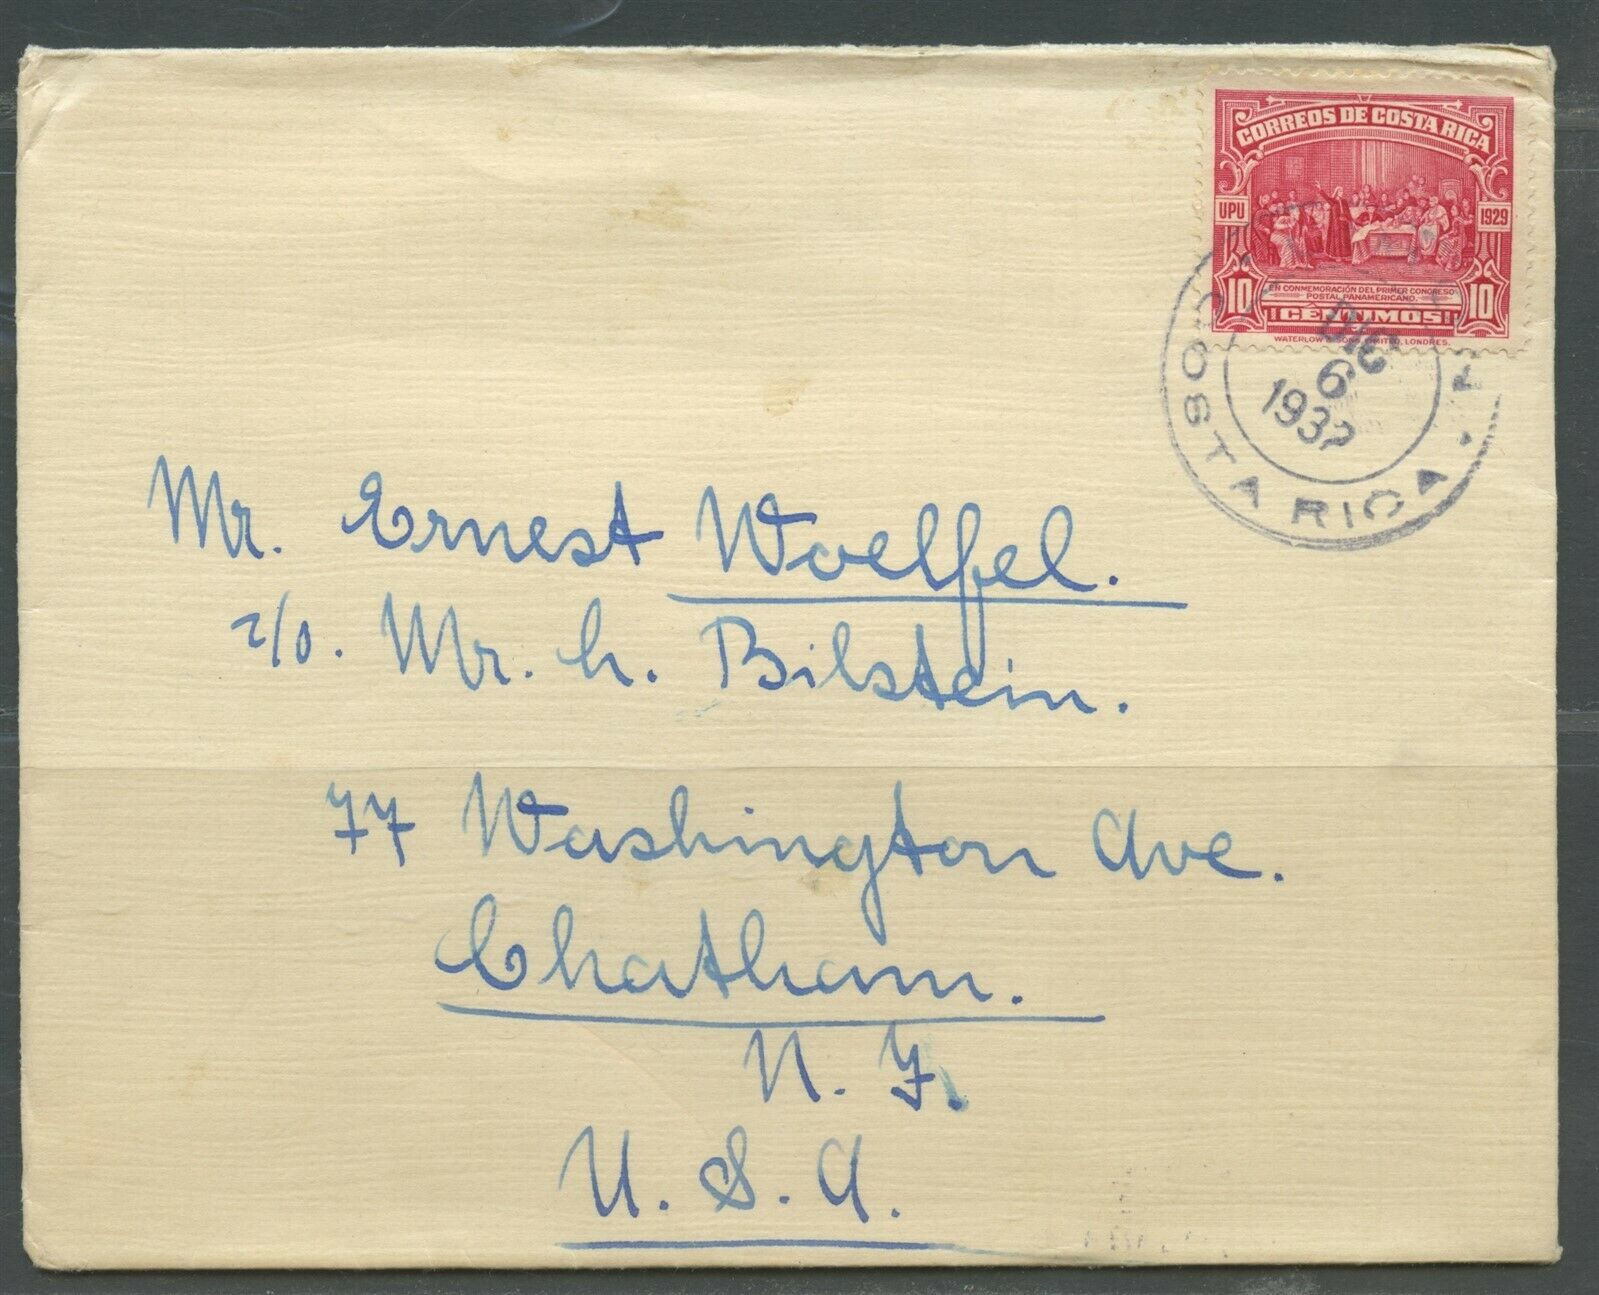 CORREOS DE COSTA RICA
UPU 1929
10 10
EN CONMEMORACIÓN DEL PRIMER CONGRESO
POSTAL PANAMERICANO.
CÉNTIMOS
WATERLOW & SONS LIMITED, LONDRES.
DIC
6
1932
COSTA RICA
Mr. Ernest Woelffel.
c/o. Mr. h. Bilstein.
77 Washington Ave.
Chatham.
N. J.
U. S. A.